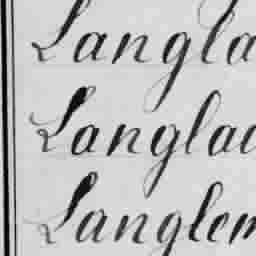 Langla
Langlad
Langlem